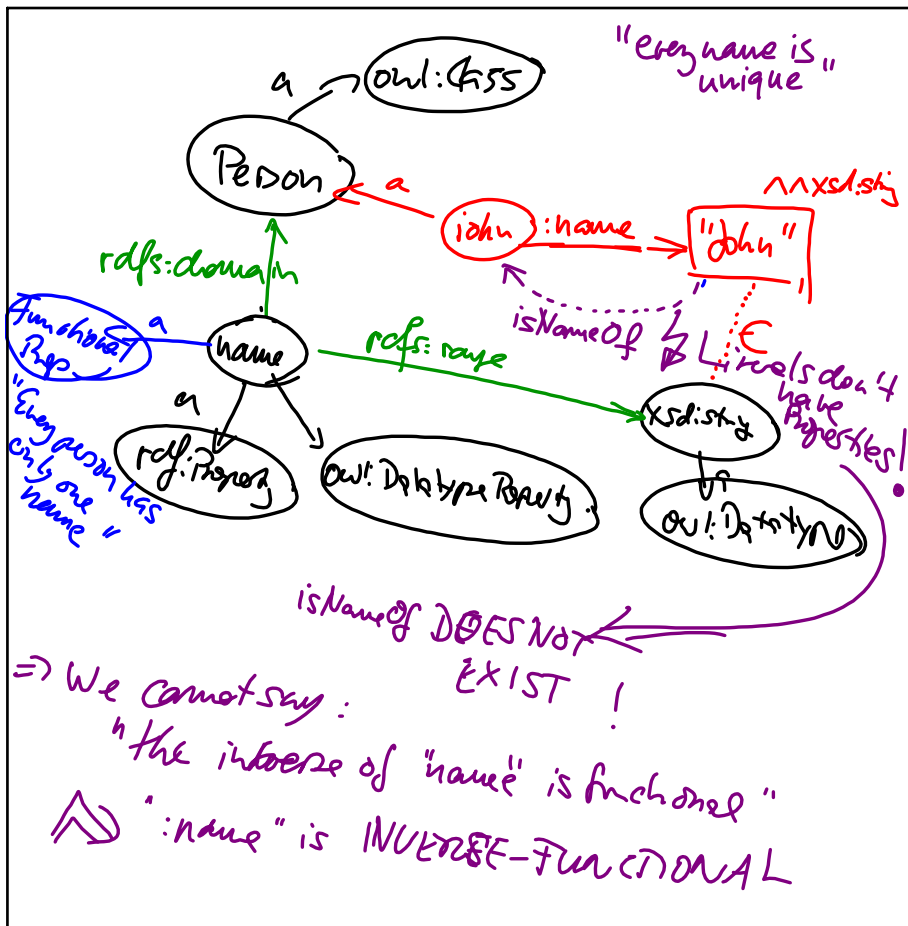 "every name is
unique"
a
owl:Class
Person
a
^^xsd:string
john
:name
"John"
rdfs:domain
isNameOf
∈
Literals don't
have
Properties!
Functional
Prop.
a
name
rdfs:range
xsd:string
"Every person has
only one
name"
a
rdf:Property
owl:DatatypeProperty
a
owl:Datatype
isNameOf DOES NOT
EXIST !
=> We cannot say:
"the inverse of "name" is functional"
":name" is INVERSE-FUNCTIONAL